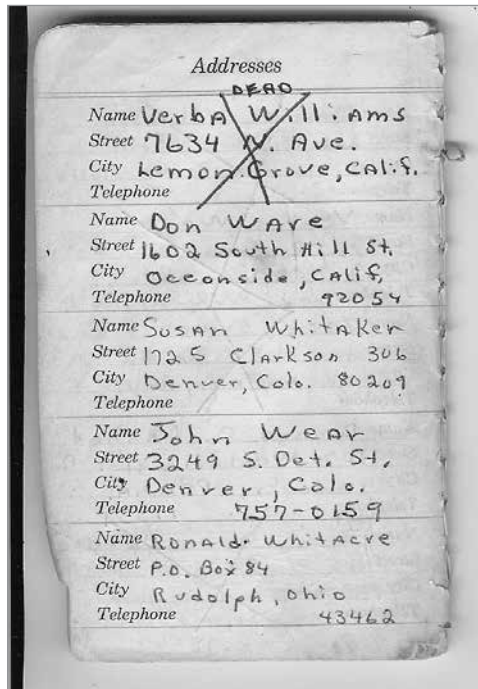 Addresses
DEAD
Name Verba Williams
Street 7634 N. Ave.
City Lemon Grove, CALif.
Telephone
Name Don Ware
Street 1602 South Hill St.
City Oceonside, CALif.
Telephone 92054
Name Susan Whitaker
Street 1725 Clarkson 306
City Denver, Colo. 80209
Telephone
Name John Wear
Street 3249 S. Det. St.
City Denver, Colo.
Telephone 757-0159
Name Ronald Whitacre
Street P.O. Box 84
City Rudolph, Ohio
Telephone 43462